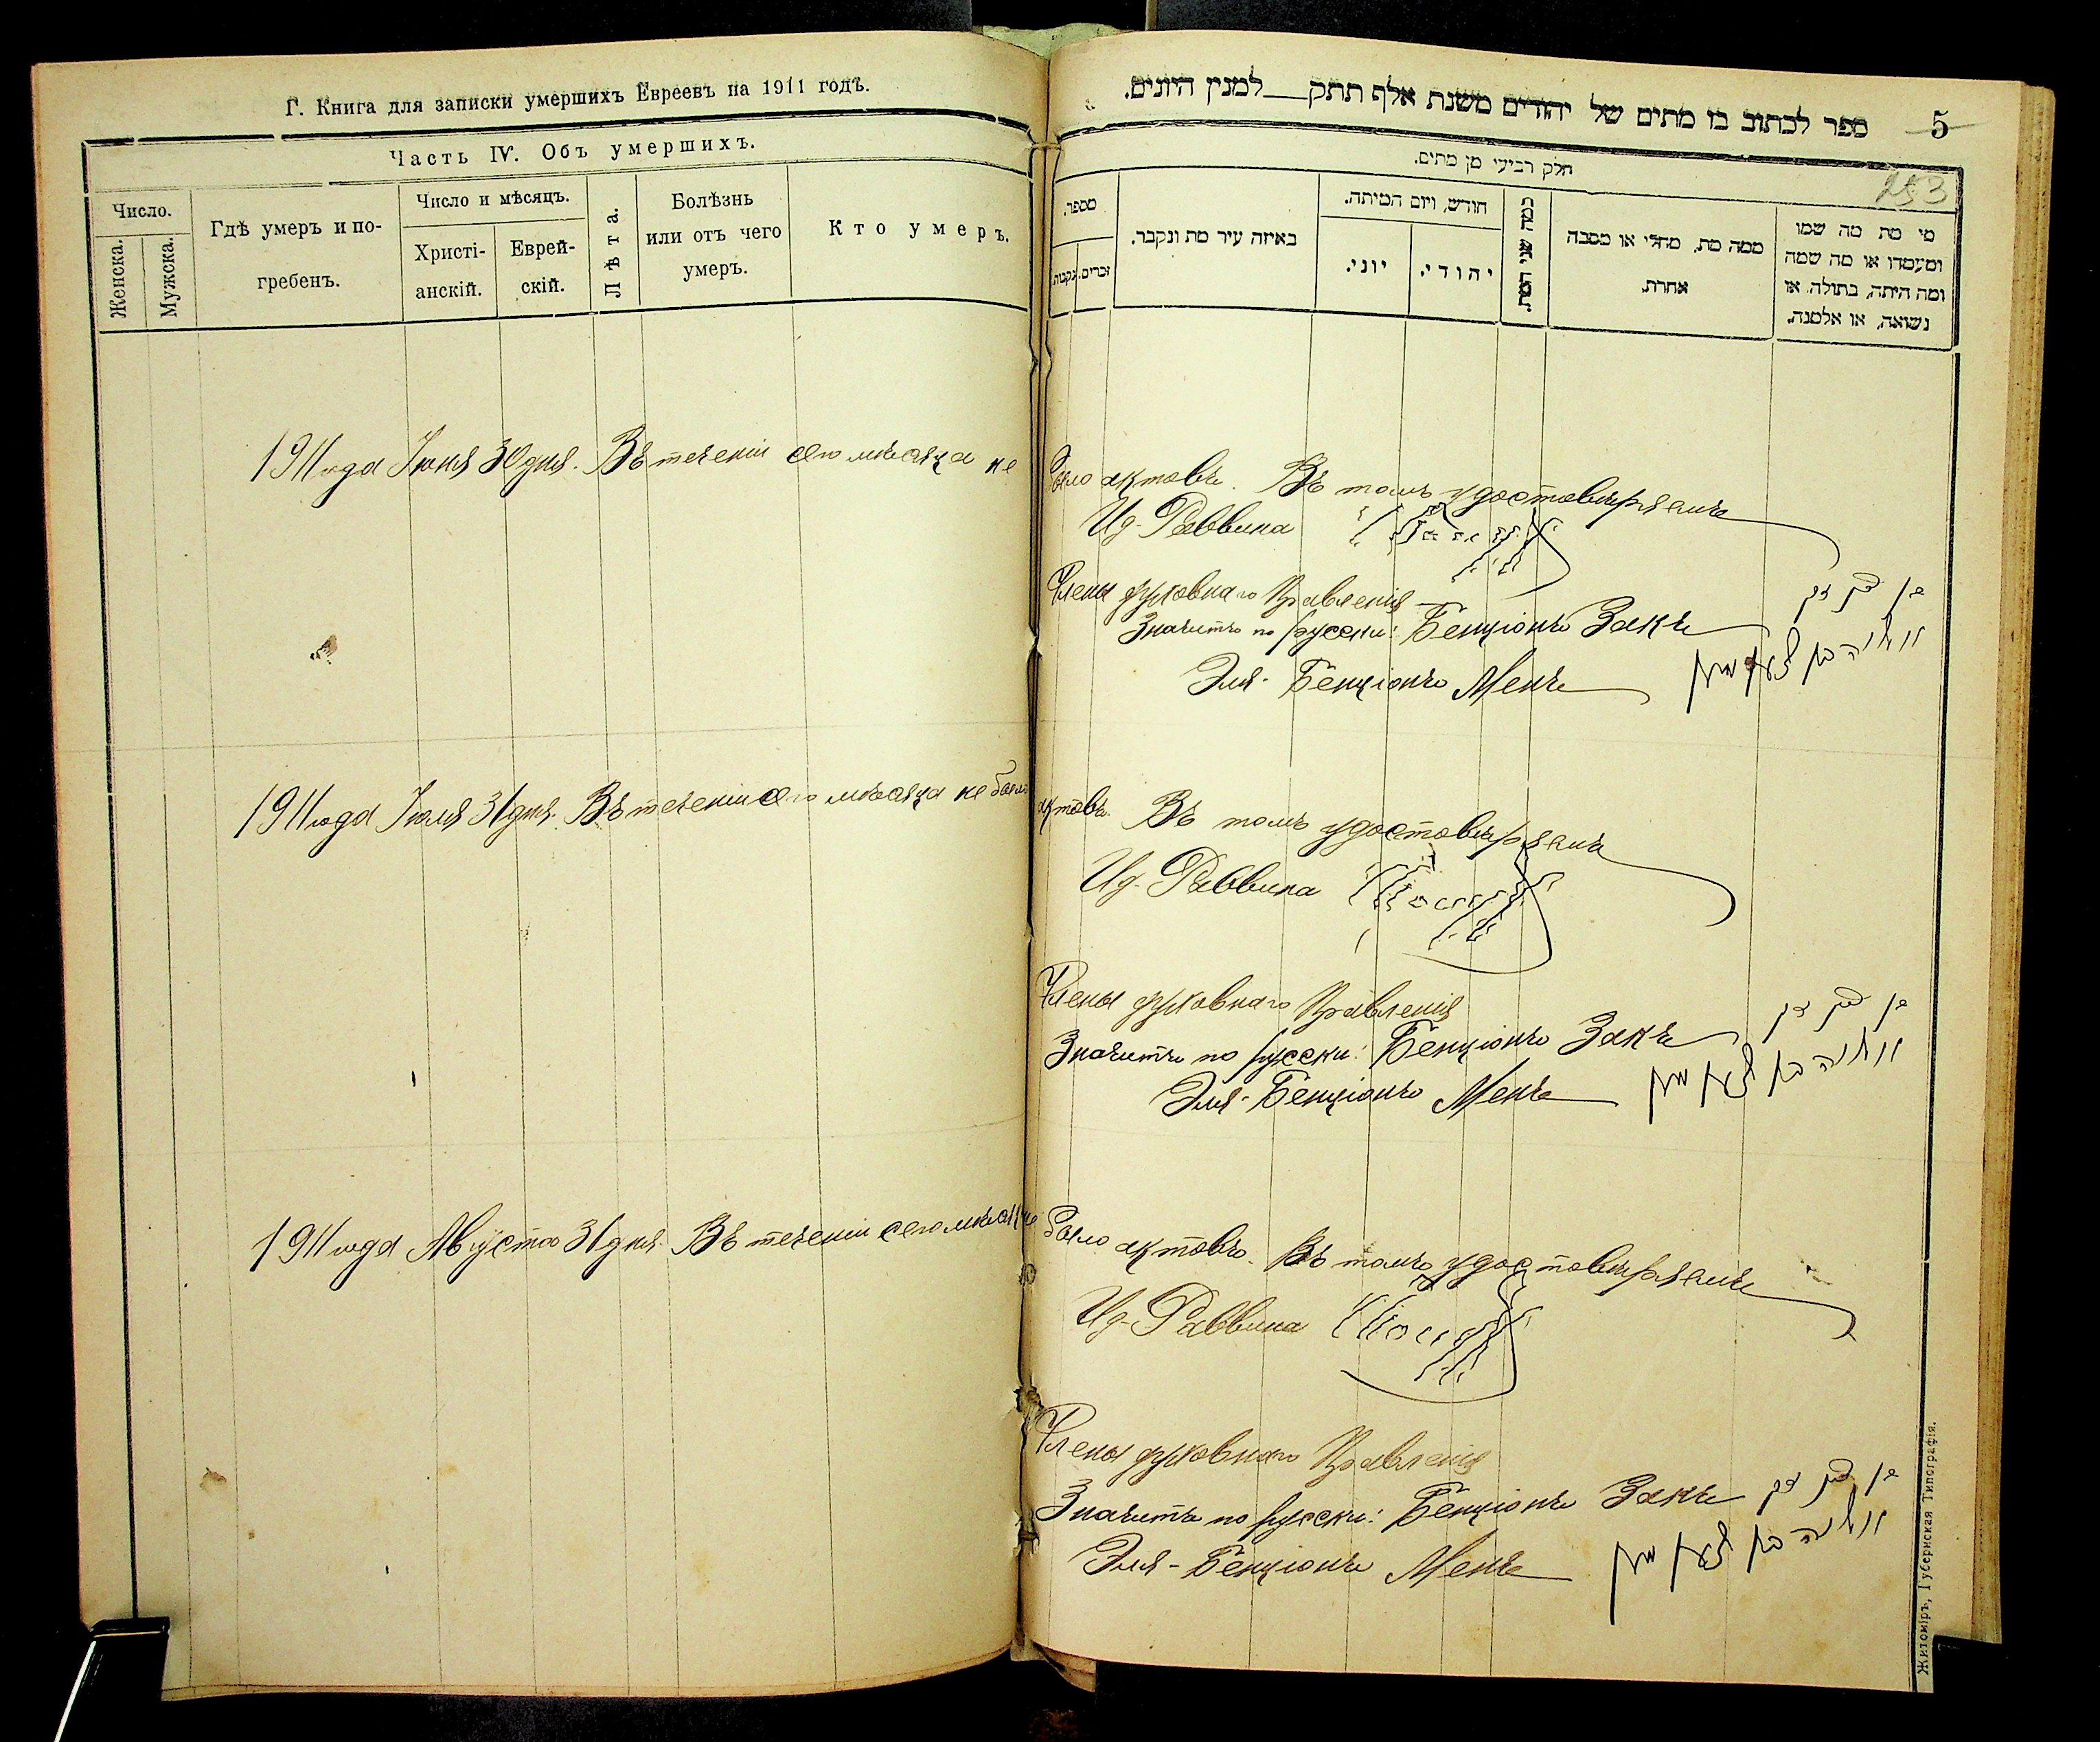 Г. Книга для записки умершихъ Евреевъ на 1911 годъ.
Часть IV. Объ умершихъ.
Число.
Женска.
Мужска.
Гдѣ умеръ и по-
гребенъ.
Число и мѣсяцъ.
Христі-
анскій.
Еврей-
скій.
Лѣта.
Болѣзнь
или отъ чего
умеръ.
Кто умеръ.
ספר לכתוב בו מתים של יהודים משנת אלף תתק — למנין היונים.
5
253
חלק רביעי מן מתים.
מי מת מה שמו
ומעמדו או מה שמה
ומה היתה, בתולה, או
נשואה, או אלמנה.
ממה מת, מחלי או מסבה
אחרת.
כמה שני המת.
חודש, ויום המיתה.
יהודי.
יוני.
באיזה עיר מת ונקבר.
מספר.
זכרים.
נקבות.
1911 года Іюня 30 дня. Въ теченіи сего мѣсяца не было актовъ. Въ томъ удостовѣряемъ
Ид. Раввина
Члены духовнаго Правленія
Значитъ по русски: Бенціонъ Закъ
Эля-Бенціонъ Менъ
1911 года Іюля 31 дня. Въ теченіи сего мѣсяца не было актовъ. Въ томъ удостовѣряемъ
Ид. Раввина
Члены духовнаго Правленія
Значитъ по русски: Бенціонъ Закъ
Эля-Бенціонъ Менъ
1911 года Августа 31 дня. Въ теченіи сего мѣсяца не было актовъ. Въ томъ удостовѣряемъ
Ид. Раввина
Члены духовнаго Правленія
Значитъ по русски: Бенціонъ Закъ
Эля-Бенціонъ Менъ
Житоміръ, Губернская Типографія.